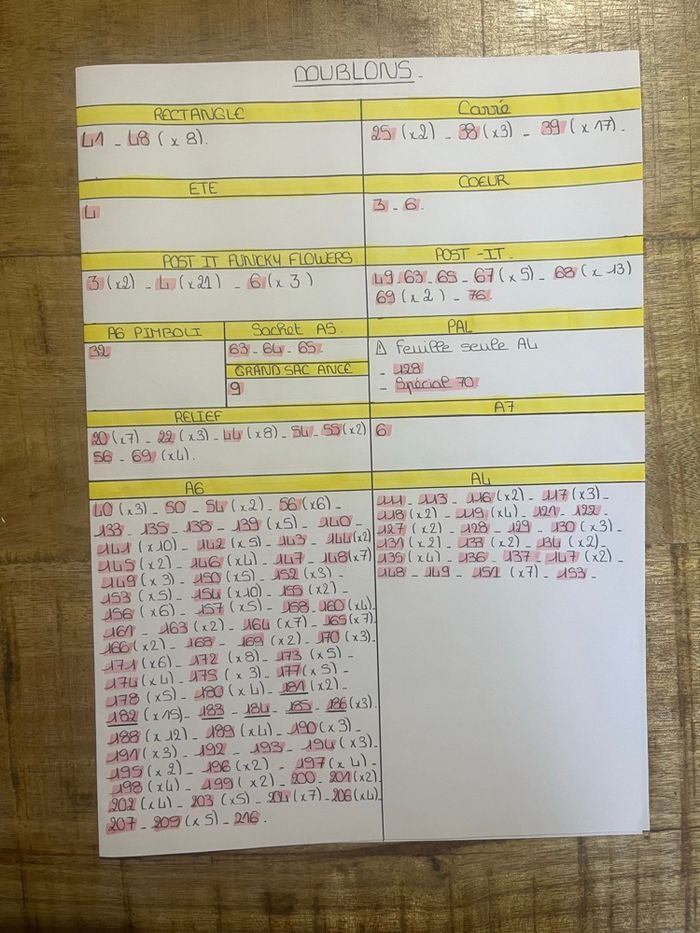 DOUBLONS.
RECTANGLE
41 - 48 (x 8).
Carré
25 (x2) - 38 (x3) - 39 (x 17).
ETE
4
COEUR
3 - 6.
POST IT FUNICKY FLOWERS.
3 (x2) - 4 (x21) - 6 (x 3)
POST-IT.
49-63-65-67 (x5)-68 (x 13)
69 (x 2) - 76.
A6 PIMBOLI
32
Sachet A5.
63-64-65.
GRAND SAC ANCE
9
PAL
⚠ feuille seule A4
- 128
- Spécial 70
RELIEF
20 (x7) - 22 (x3) - 44 (x8) - 54-55 (x2)
56 - 69 (x4).
A7
6
A6
40 (x3) - 50 - 54 (x2) - 56 (x6) -
133 - 135 - 138 - 139 (x5) - 140 -
141 (x10) - 142 (x5) - 143 - 144 (x2)
145 (x2) - 146 (x4) - 147 - 148 (x7)
149 (x 3) - 150 (x5) - 152 (x3) -
153 (x5) - 154 (x10) - 155 (x2) -
156 (x6) - 157 (x5) - 158 - 160 (x4).
161 - 163 (x2) - 164 (x7) - 165 (x7).
166 (x2) - 168 - 169 (x2) - 170 (x3).
171 (x6) - 172 (x8) - 173 (x5) -
174 (x4) - 175 (x 3) - 177 (x5) -
178 (x5) - 180 (x4) - 181 (x2) -
182 (x15) - 183 - 184 - 185 - 186 (x3).
188 (x 12) - 189 (x4) - 190 (x3) -
191 (x3) - 192 - 193 - 194 (x3) -
195 (x 2) - 196 (x2) - 197 (x 4) -
198 (x4) - 199 (x2) - 200 - 201 (x2).
202 (x4) - 203 (x5) - 204 (x7) - 206 (x4).
207 - 209 (x5) - 216.
A4
111 - 113 - 116 (x2) - 117 (x3) -
118 (x2) - 119 (x4) - 121 - 122 -
127 (x2) - 128 - 129 - 130 (x3) -
131 (x2) - 133 (x2) - 134 (x2) -
135 (x4) - 136 - 137 - 147 (x2) -
148 - 149 - 151 (x7) - 153 -